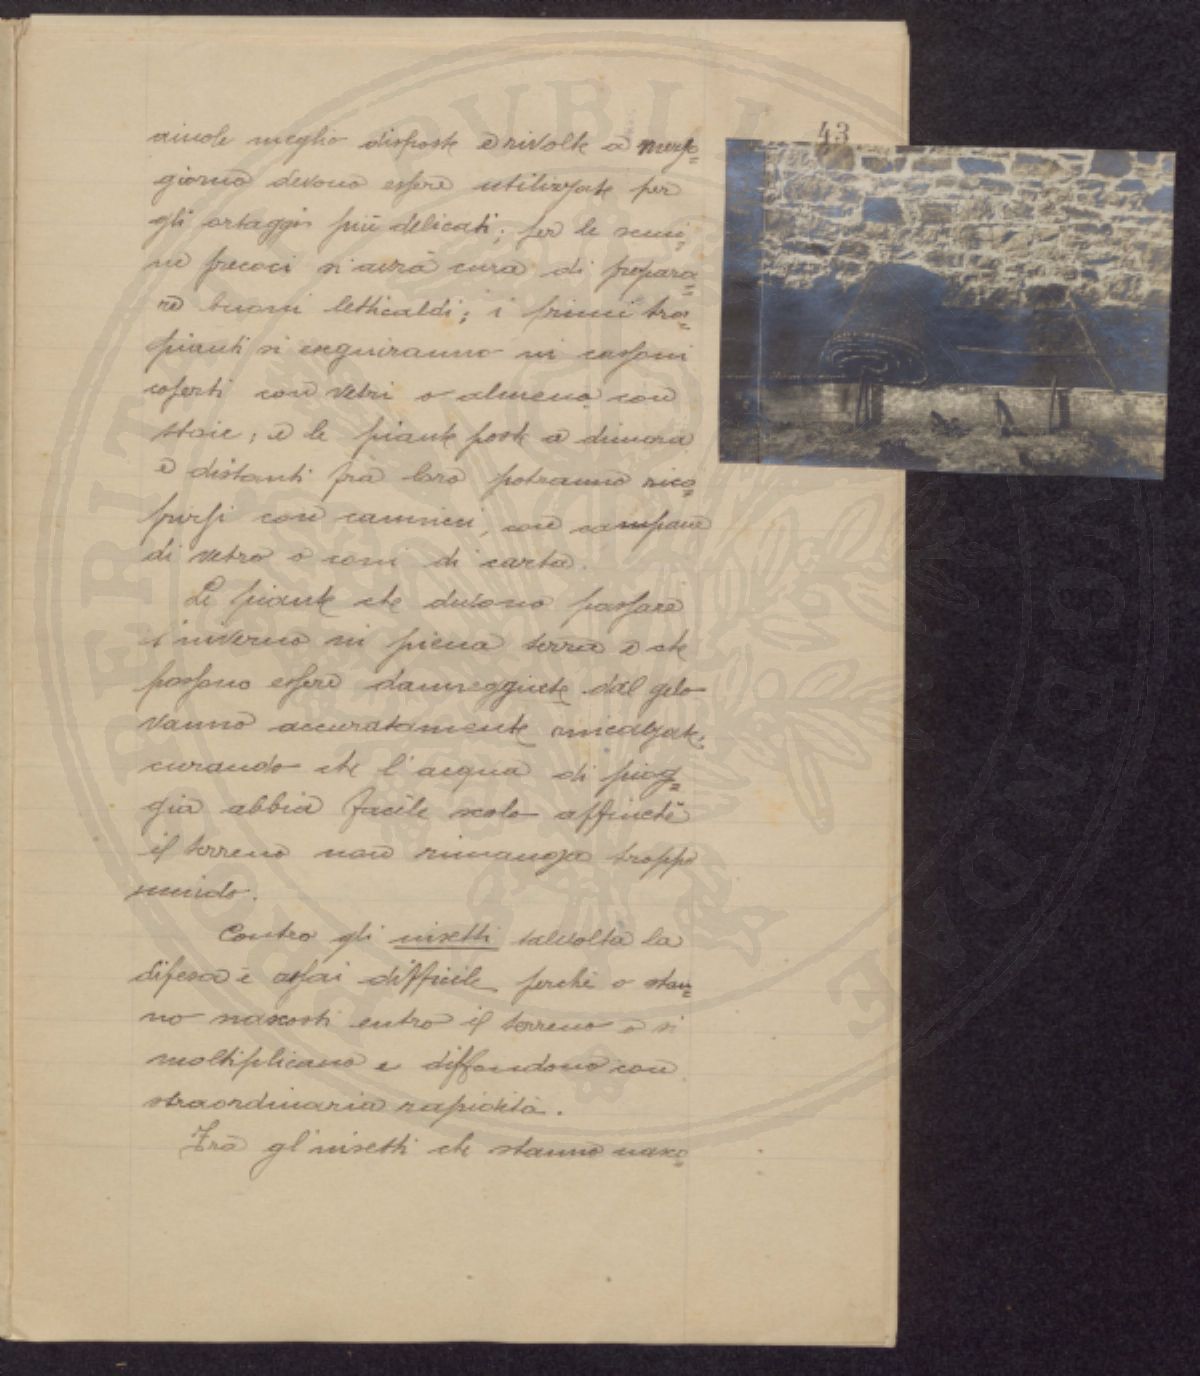 43
aiuole meglio disposte e rivolte a mezzo=
giorno devono essere utilizzate per
gli ortaggi più delicati; per le semi=
ne precoci si avrà cura di prepara=
re buoni letticaldi; i primi tra=
pianti si eseguiranno in cassoni
coperti con vetri o almeno con
stoie; e le piante poste a dimora
e distanti fra loro potranno rico=
prirsi con camnici, con campane
di vetro o coni di carta.
Le piante che devono passare
l'inverno in piena terra e che
possono essere danneggiate dal gelo
vanno accuratamente rincalzate,
curando che l'acqua di piog=
gia abbia facile scolo affinché
il terreno non rimanga troppo
umido.
Contro gli insetti talvolta la
difesa è assai difficile perchè o stan=
no nascosti entro il terreno o si
moltiplicano e diffondono con
straordinaria rapidità.
Fra gl'insetti che stanno nasco=